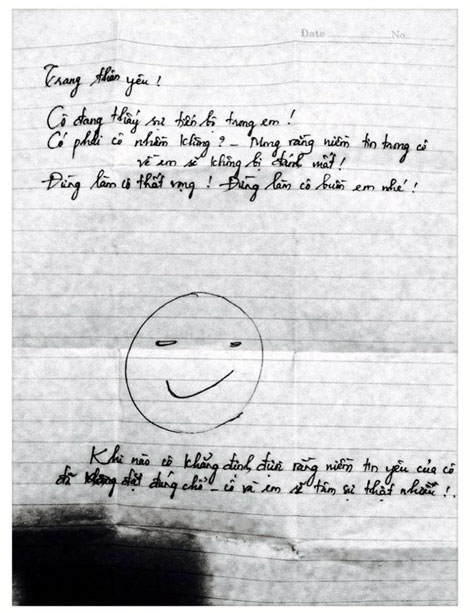 Date.............. No..............
Trang thân yêu !
Cô đang thấy sự tiến bộ trong em !
Có phải cô nhầm không ? _ Mong rằng niềm tin trong cô
về em sẽ không bị đánh mất !
Đừng làm cô thất vọng ! Đừng làm cô buồn em nhé !
Khi nào cô khẳng định được rằng niềm tin yêu của cô
đã đặt đúng chỗ _ cô và em sẽ tâm sự thật nhiều !.